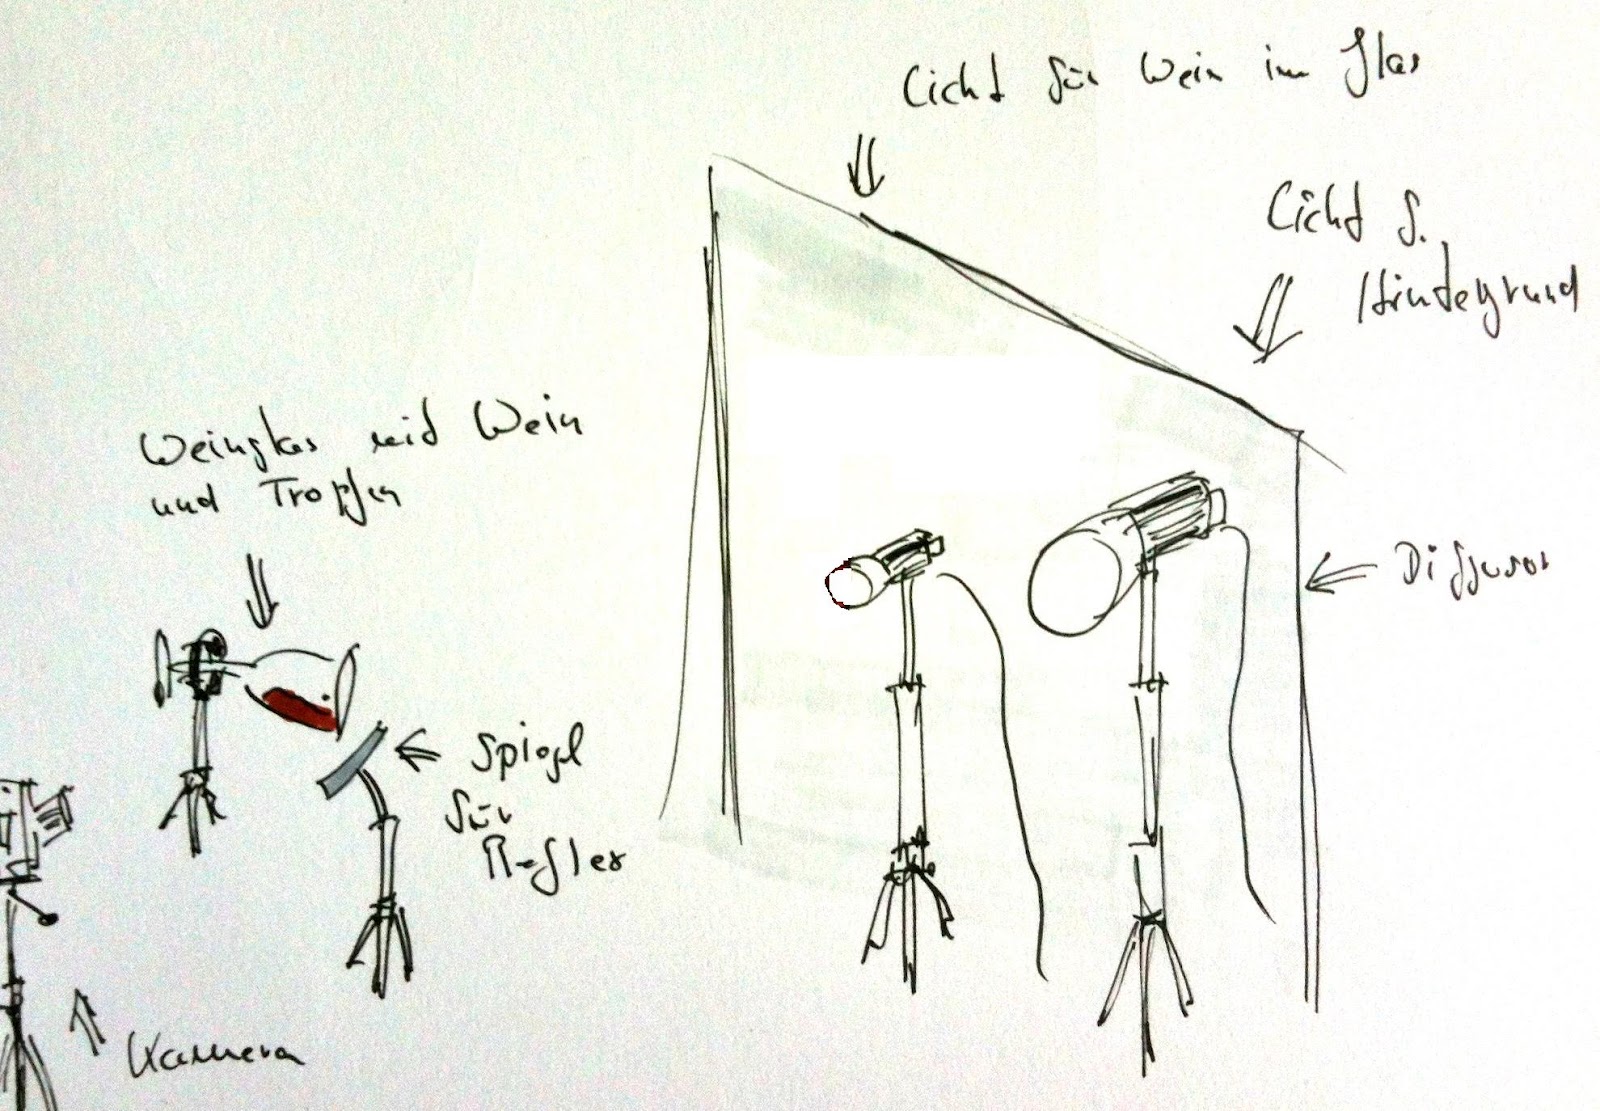 Licht für Wein im Glas
Licht f.
Hintergrund
Weinglas mit Wein
und Tropfen
Diffusor
Spiegel
für
Reflex
Kamera